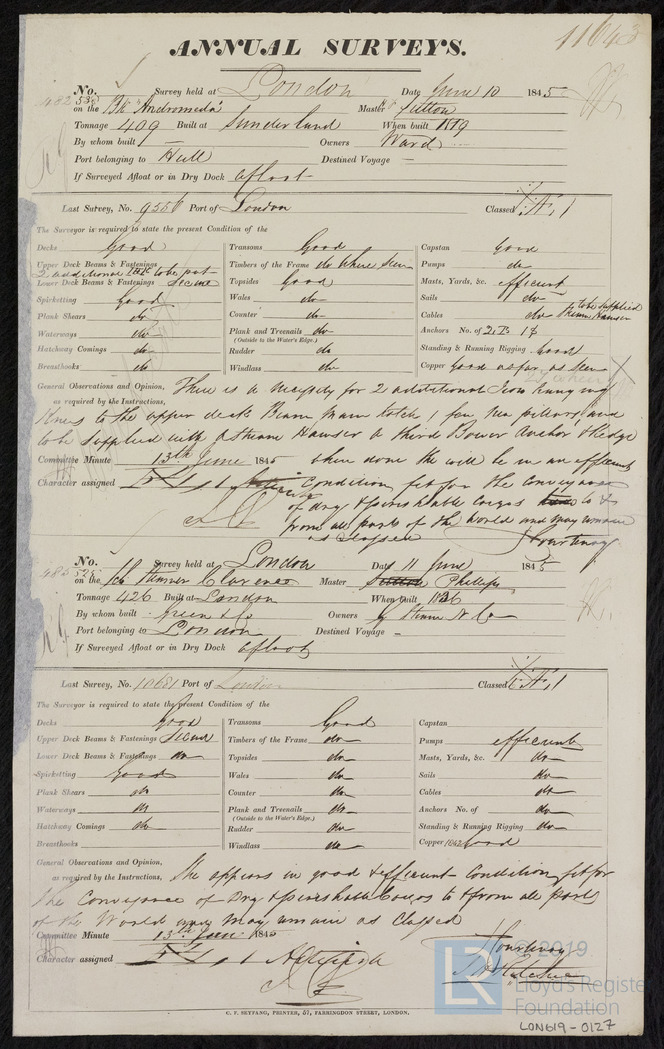 11643
ANNUAL SURVEYS.
No. 535 Survey held at London Date June 10 1845
on the Bk "Andromeda" Master Sutton
Tonnage 409 Built at Sunderland When built 1819
By whom built — Owners Ward
Port belonging to Hull Destined Voyage —
If Surveyed Afloat or in Dry Dock afloat
Last Survey, No. 9556 Port of London Classed Æ, 1
The Surveyor is required to state the present Condition of the
Decks Good Transoms Good Capstan Good
Upper Deck Beams & Fastenings Timbers of the Frame do where seen Pumps do
2 additional to be put
Lower Deck Beams & Fastenings Secure Topsides Good Masts, Yards, &c. efficient
Spirketting Good Wales do Sails do
Plank Shears do Counter do Cables do to be supplied Stream Hawser
Waterways do Plank and Treenails do Anchors No. of
(Outside to the Water's Edge.)
Hatchway Comings do Rudder do Standing & Running Rigging Good
Breasthooks do Windlass do Copper good as far as seen
General Observations and Opinion, There is a necessity for 2 additional Iron hanging
as required by the Instructions, Knees to the upper deck Beam Main hatch, and
to be supplied with a Stream Hawser a third Bower Anchor & Kedge
Committee Minute 13th June 1845 when done she will be in an efficient
Character assigned Condition, fit for the conveyance
of dry & perishable Cargoes to &
from all parts of the World and may remain
as Classed
Courtenay
No. 525 Survey held at London Date 11 June 1845
on the Steamer Clarence Master Phillips
Tonnage 426 Built at London When built 1836
By whom built Green & Co Owners G Steam N Co
Port belonging to London Destined Voyage –
If Surveyed Afloat or in Dry Dock afloat
Last Survey, No. 10681 Port of London Classed Æ, 1
The Surveyor is required to state the present Condition of the
Decks Good Transoms Good Capstan
Upper Deck Beams & Fastenings Secure Timbers of the Frame do Pumps efficient
Lower Deck Beams & Fastenings do Topsides do Masts, Yards, &c. do
Spirketting Good Wales do Sails do
Plank Shears do Counter do Cables do
Waterways do Plank and Treenails do Anchors No. of do
(Outside to the Water's Edge.)
Hatchway Comings do Rudder do Standing & Running Rigging do
Breasthooks Windlass do Copper 1842 Good
General Observations and Opinion,
as required by the Instructions, She appears in good & efficient Condition, fit for
the Conveyance of Dry & perishable Cargoes to & from all parts
of the World may remain as Classed
Committee Minute 13th June 1845
Character assigned
Courtenay
© 2019
Lloyd's Register
Foundation
LR
C. F. SEYFANG, PRINTER, 57, FARRINGDON STREET, LONDON.
LON619-0127